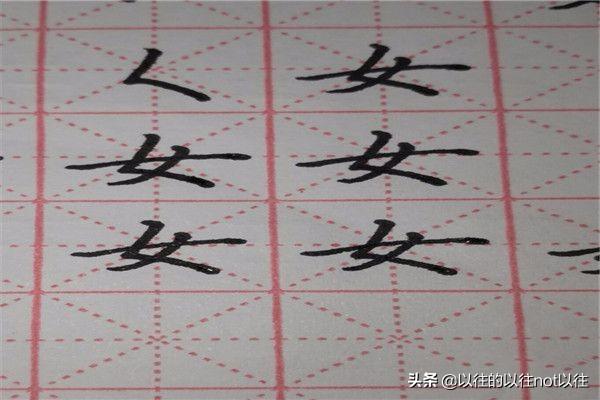 ㇛ 女
女 女
女 女
头条 @以往的以往not以往